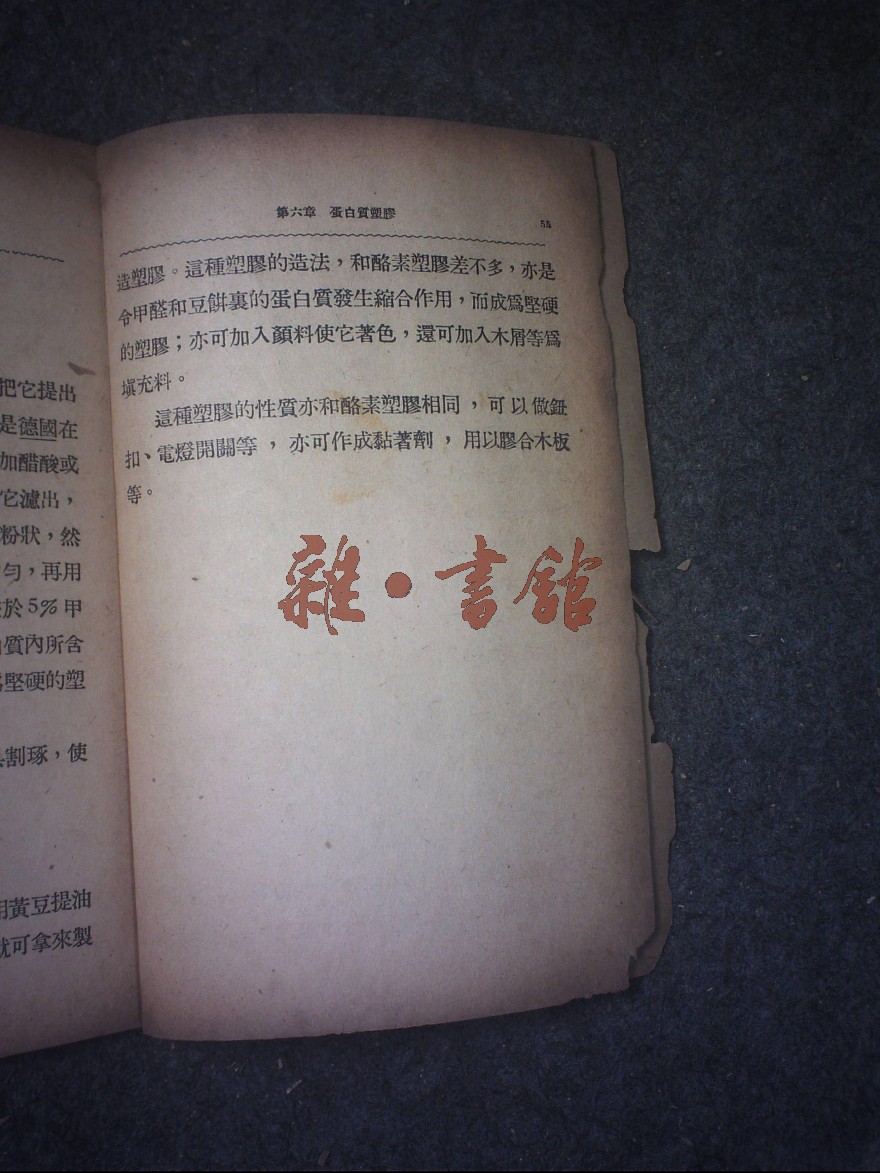 把它提出
是德國在
加醋酸或
它濾出，
粉狀，然
勻，再用
於5%甲
質內所含
堅硬的塑
割琢，使
用黃豆提油
就可拿來製
第六章 蛋白質塑膠
55
造塑膠。這種塑膠的造法，和酪素塑膠差不多，亦是
令甲醛和豆餅裏的蛋白質發生縮合作用，而成爲堅硬
的塑膠；亦可加入顏料使它著色，還可加入木屑等爲
塡充料。
這種塑膠的性质亦和酪素塑膠相同，可以做鈕
扣、電燈開關等，亦可作成黏著劑，用以膠合木板
等。
雜·書館